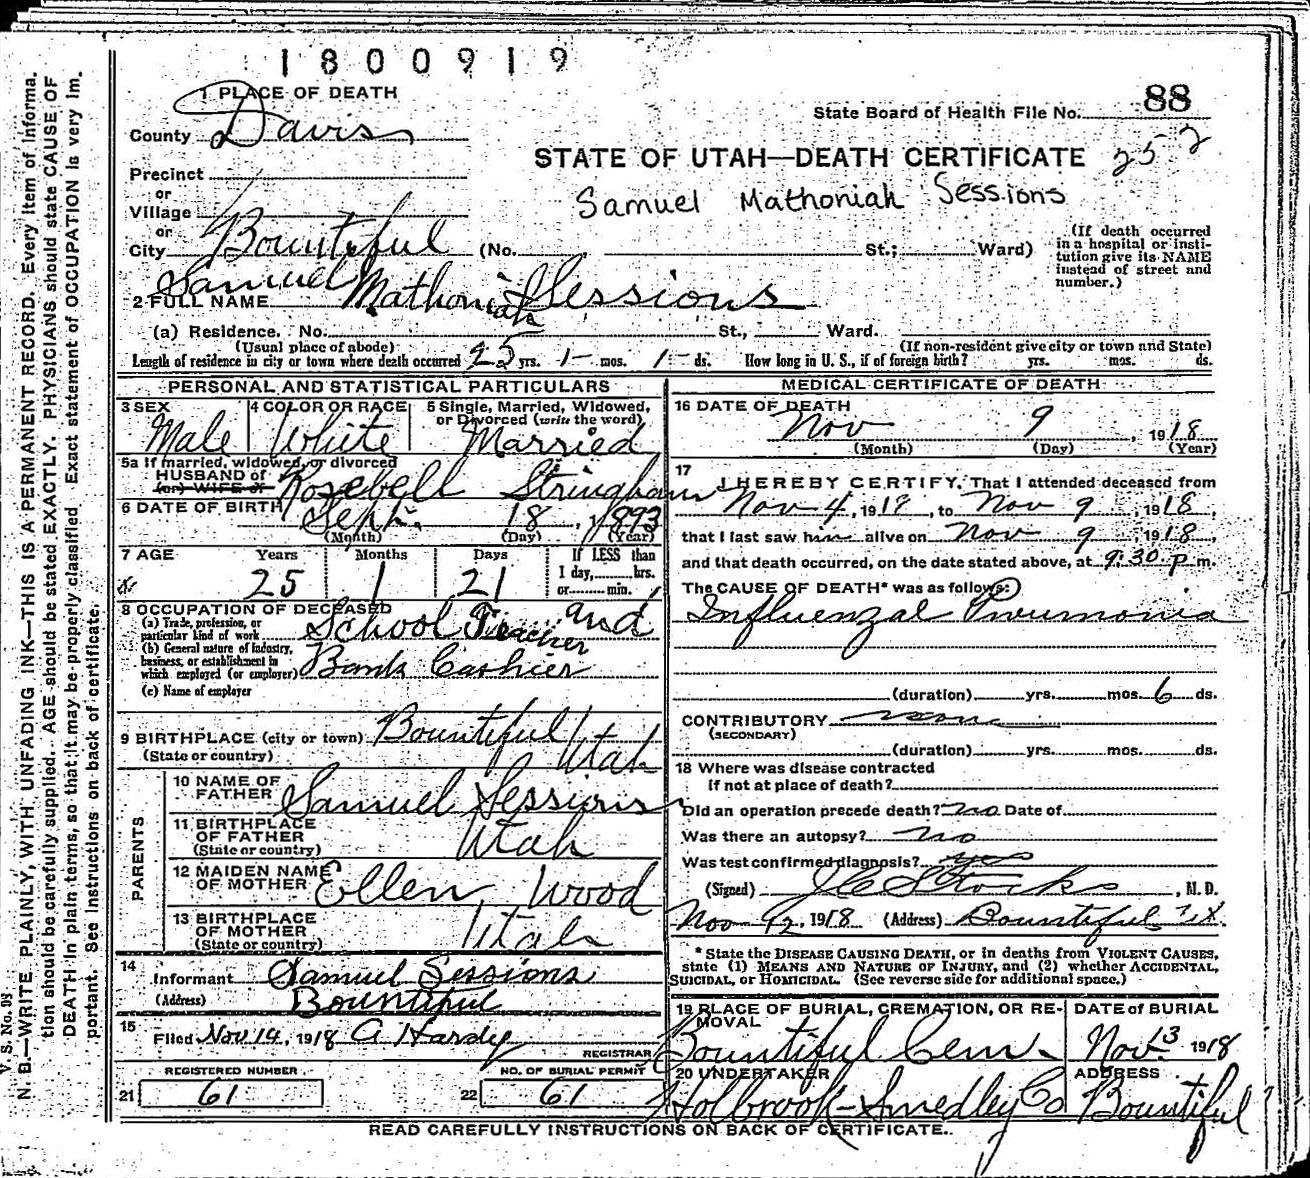 1800919
1 PLACE OF DEATH
State Board of Health File No. 88
County Davis
STATE OF UTAH—DEATH CERTIFICATE 252
Precinct
or
Samuel Mathoniah Sessions
Village
or
City Bountiful (No. St.; Ward)
(If death occurred in a hospital or insti-
tution give its NAME
instead of street and
number.)
2 FULL NAME Samuel Mathoniah Sessions
(a) Residence. No. St., Ward.
(Usual place of abode) (If non-resident give city or town and State)
Length of residence in city or town where death occurred 25 yrs. 1 mos. 1 ds. How long in U. S., if of foreign birth? yrs. mos. ds.
PERSONAL AND STATISTICAL PARTICULARS
3 SEX 4 COLOR OR RACE 5 Single, Married, Widowed,
or Divorced (write the word)
Male White Married
5a If married, widowed, or divorced
HUSBAND of Rosebell Stringham
(or) WIFE of
6 DATE OF BIRTH Sept. 18, 1893
(Month) (Day) (Year)
7 AGE Years Months Days If LESS than
1 day, hrs.
or min.
25 1 21
8 OCCUPATION OF DECEASED
(a) Trade, profession, or
particular kind of work School Teacher and
(b) General nature of industry,
business, or establishment in
which employed (or employer) Bank Cashier
(c) Name of employer
9 BIRTHPLACE (city or town) Bountiful
(State or country) Utah
PARENTS
10 NAME OF
FATHER Samuel Sessions
11 BIRTHPLACE
OF FATHER Utah
(State or country)
12 MAIDEN NAME
OF MOTHER Ellen Wood
13 BIRTHPLACE
OF MOTHER Utah
(State or country)
14
Informant Samuel Sessions
(Address) Bountiful
15
Filed Nov 14, 1918 A Hardy
REGISTRAR
REGISTERED NUMBER NO. OF BURIAL PERMIT
21 61 22 61
MEDICAL CERTIFICATE OF DEATH
16 DATE OF DEATH
Nov 9, 1918
(Month) (Day) (Year)
17 I HEREBY CERTIFY, That I attended deceased from
Nov 4, 1918, to Nov 9, 1918,
that I last saw him alive on Nov 9, 1918,
and that death occurred, on the date stated above, at 9:30 p m.
The CAUSE OF DEATH* was as follows:
Influenzal Pneumonia
(duration) yrs. mos. 6 ds.
CONTRIBUTORY none
(SECONDARY)
(duration) yrs. mos. ds.
18 Where was disease contracted
if not at place of death?
Did an operation precede death? no Date of
Was there an autopsy? no
Was test confirmed diagnosis? yes
(Signed) J C Stocks, M. D.
Nov 12, 1918 (Address) Bountiful Ut.
* State the DISEASE CAUSING DEATH, or in deaths from VIOLENT CAUSES,
state (1) MEANS AND NATURE OF INJURY, and (2) whether ACCIDENTAL,
SUICIDAL, or HOMICIDAL. (See reverse side for additional space.)
19 PLACE OF BURIAL, CREMATION, OR RE-
MOVAL DATE OF BURIAL
Bountiful Cem. Nov. 13 1918
20 UNDERTAKER ADDRESS
Holbrook-Smedley Co Bountiful
READ CAREFULLY INSTRUCTIONS ON BACK OF CERTIFICATE.
V. S. No. 98
N. B.—WRITE PLAINLY, WITH UNFADING INK—THIS IS A PERMANENT RECORD. Every item of informa-
tion should be carefully supplied. AGE should be stated EXACTLY. PHYSICIANS should state CAUSE OF
DEATH in plain terms, so that it may be properly classified. Exact statement of OCCUPATION is very im-
portant. See instructions on back of certificate.